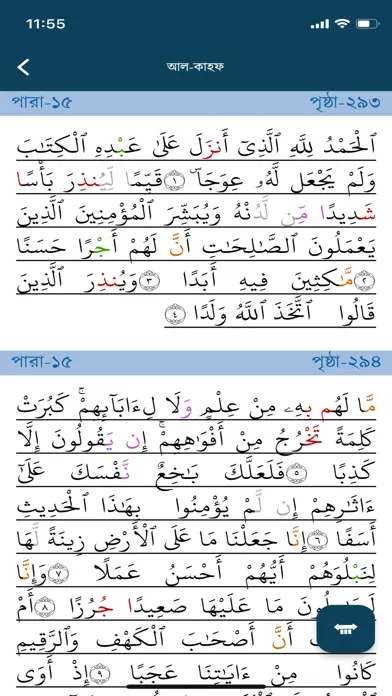 11:55
আল-কাহফ
পারা-১৫ পৃষ্ঠা-২৯৩
ٱلْحَمْدُ لِلَّهِ ٱلَّذِىٓ أَنزَلَ عَلَىٰ عَبْدِهِ ٱلْكِتَـٰبَ
وَلَمْ يَجْعَل لَّهُۥ عِوَجَاۜ ۝١ قَيِّمًا لِّيُنذِرَ بَأْسًا
شَدِيدًا مِّن لَّدُنْهُ وَيُبَشِّرَ ٱلْمُؤْمِنِينَ ٱلَّذِينَ
يَعْمَلُونَ ٱلصَّـٰلِحَـٰتِ أَنَّ لَهُمْ أَجْرًا حَسَنًا
۝٢ مَّـٰكِثِينَ فِيهِ أَبَدًا ۝٣ وَيُنذِرَ ٱلَّذِينَ
قَالُوا۟ ٱتَّخَذَ ٱللَّهُ وَلَدًا ۝٤
পারা-১৫ পৃষ্ঠা-২৯৪
مَّا لَهُم بِهِۦ مِنْ عِلْمٍ وَلَا لِـَٔابَآئِهِمْ ۚ كَبُرَتْ
كَلِمَةً تَخْرُجُ مِنْ أَفْوَٰهِهِمْ ۚ إِن يَقُولُونَ إِلَّا
كَذِبًا ۝٥ فَلَعَلَّكَ بَـٰخِعٌ نَّفْسَكَ عَلَىٰٓ
ءَاثَـٰرِهِمْ إِن لَّمْ يُؤْمِنُوا۟ بِهَـٰذَا ٱلْحَدِيثِ
أَسَفًا ۝٦ إِنَّا جَعَلْنَا مَا عَلَى ٱلْأَرْضِ زِينَةً لَّهَا
لِنَبْلُوَهُمْ أَيُّهُمْ أَحْسَنُ عَمَلًا ۝٧ وَإِنَّا
لَجَـٰعِلُونَ مَا عَلَيْهَا صَعِيدًا جُرُزًا ۝٨ أَمْ
أَنَّ أَصْحَـٰبَ ٱلْكَهْفِ وَٱلرَّقِيمِ
كَانُوا۟ مِنْ ءَايَـٰتِنَا عَجَبًا ۝٩ إِذْ أَوَى